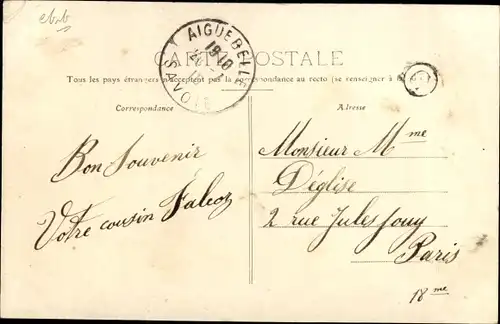 cbrb
CARTE POSTALE
AIGUEBELLE
1910
SAVOIE
Tous les pays étrangers n'acceptent pas la correspondance au recto (se renseigner à
Correspondance
Adresse
Bon Souvenir
Votre cousin Falcoz
Monsieur Mme
Déglise
2 rue Jules Jouy
Paris
18me